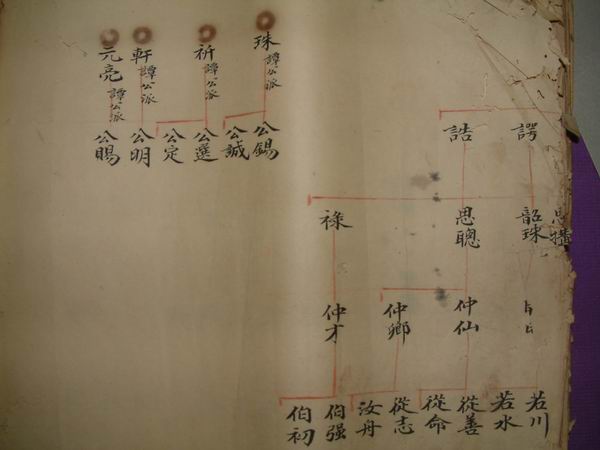 諤
誥
韶珠
思聰
祿
仲仙
仲鄉
仲才
若川
若水
從善
從命
從志
汝舟
伯强
伯初
珠 譚公派
祈 譚公派
軒 譚公派
元亮 譚公派
公錫
公誠
公選
公定
公明
公賜